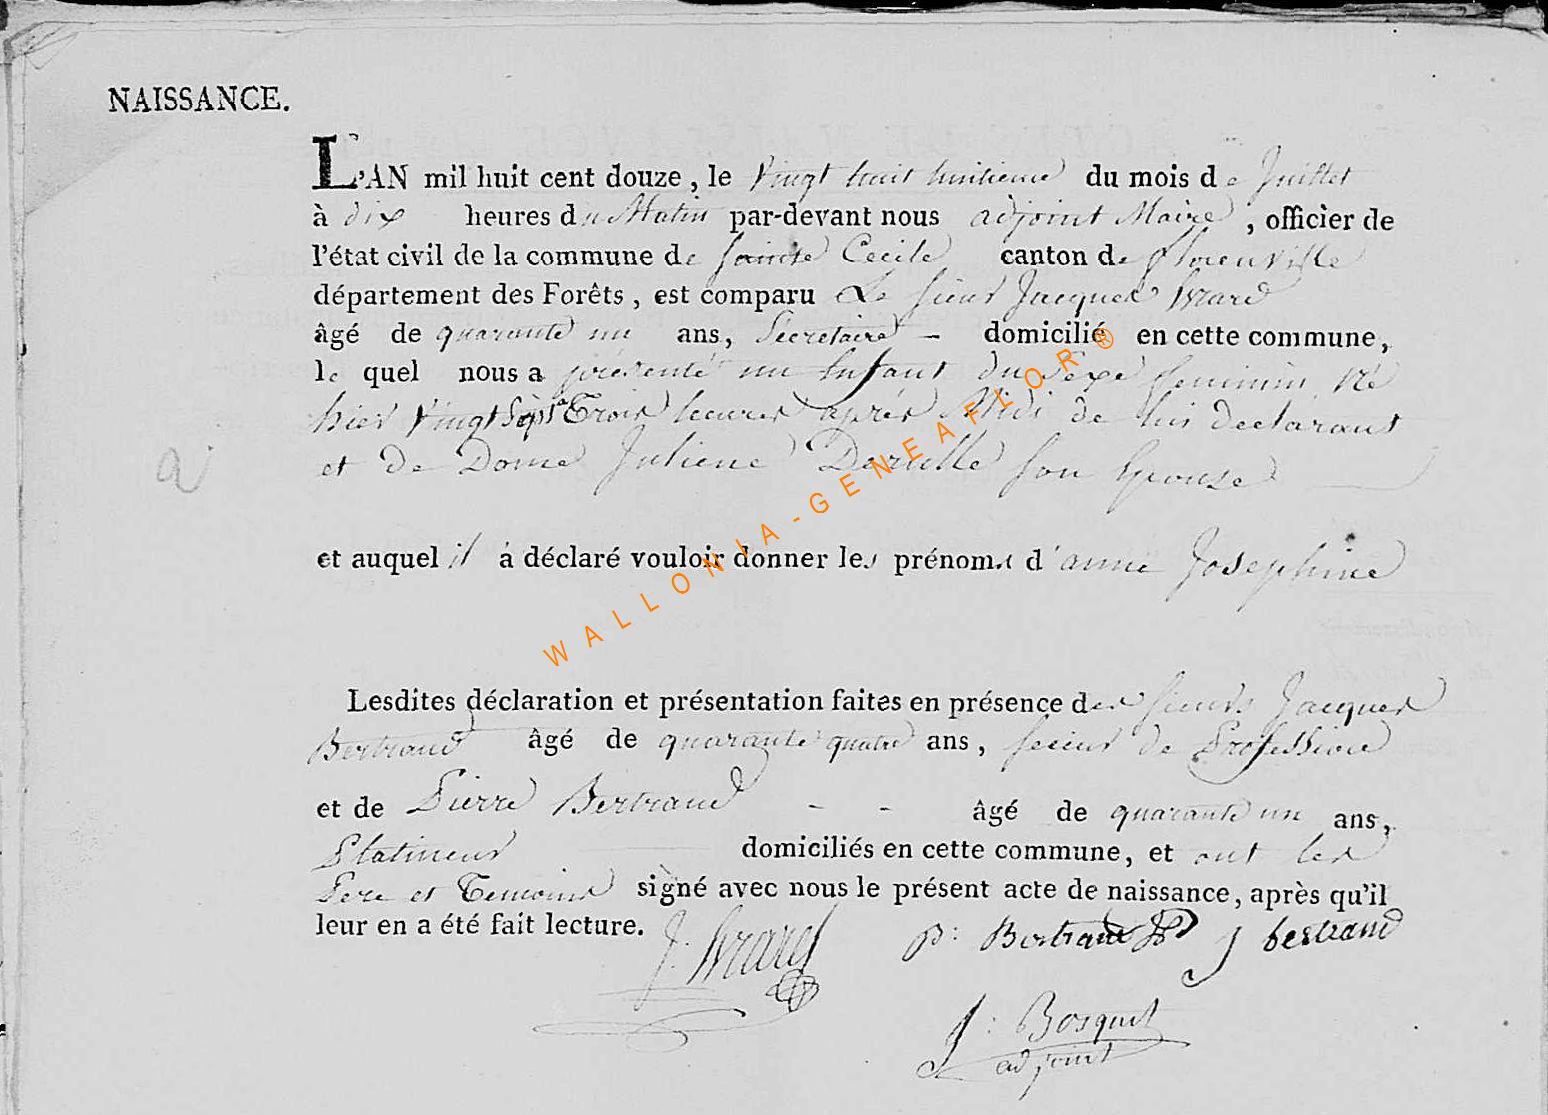 NAISSANCE.
L'AN mil huit cent douze, le Vingt huit huitieme du mois de Juillet
à dix heures du Matin par-devant nous adjoint Maire, officier de
l'état civil de la commune de sainte Cecile canton de florenville
département des Forêts, est comparu Le sieur Jacques
âgé de quarante un ans, Secretaire – domicilié en cette commune,
le quel nous a présenté un Enfant du Sexe feminin né
hier Vingt Sept Trois heures après Midi de lui declarant
et de Dome Juliene son Epouse
a
et auquel il a déclaré vouloir donner les prénoms d'anne Josephine
Lesdites déclaration et présentation faites en présence des sieurs Jacques
Bertrand âgé de quarante quatre ans, de Profession
et de Pierre Bertrand - - âgé de quarante un ans,
Platineur domiciliés en cette commune, et ont les
Pere et Temoins signé avec nous le présent acte de naissance, après qu'il
leur en a été fait lecture.
P: Bertrand J bertrand
J: Bosquet
adjoint
WALLONIA-GENEAFLOR®